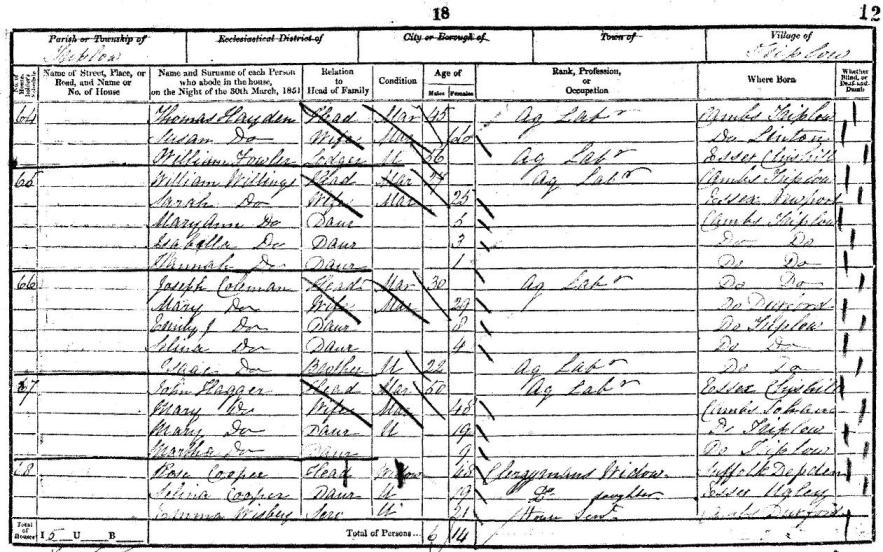 18
12
Parish or Township of Ecclesiastical District of City or Borough of Town of Village of
Triplow Triplow
Name of Street, Place, or Road, and Name or No. of House Name and Surname of each Person who abode in the house, on the Night of the 30th March, 1851 Relation to Head of Family Condition Age of Males Females Rank, Profession, or Occupation Where Born Whether Blind, or Deaf-and-Dumb
64 Thomas Hayden Head Mar 45 Ag Labr Cambs Triplow
Susan Do Wife Mar 40 Do Linton
William Fowler Lodger U 56 Ag Labr Essex Chishill
65 William Willings Head Mar Ag Labr Cambs Triplow
Sarah Do Wife Mar 25 Essex Newport
Mary Ann Do Daur 5 Cambs Triplow
Isabella Do Daur 3 Do Do
Hannah Do Daur 1 Do Do
66 Joseph Coleman Head Mar 30 Ag Labr Do Do
Mary Do Wife Mar 29 Do Duxford
Emily J Do Daur 8 Do Triplow
Selina Do Daur 4 Do Do
Isaac Do Brother U 22 Ag Labr Do Do
67 John Flagger Head Mar 50 Ag Labr Essex Chishill
Mary Do Wife Mar 48 Cambs
Mary Do Daur U 19 Do Triplow
Martha Do Daur 9 Do Triplow
68 Rose Cooper Head Widow 48 Clergymans Widow Suffolk Depden
Selina Cooper Daur U 19 Do daughter Essex Ugley
Emma Wisbey Serv U 21 House Servt Cambs Duxford
Total of Houses I 5 U B Total of Persons... 6 14